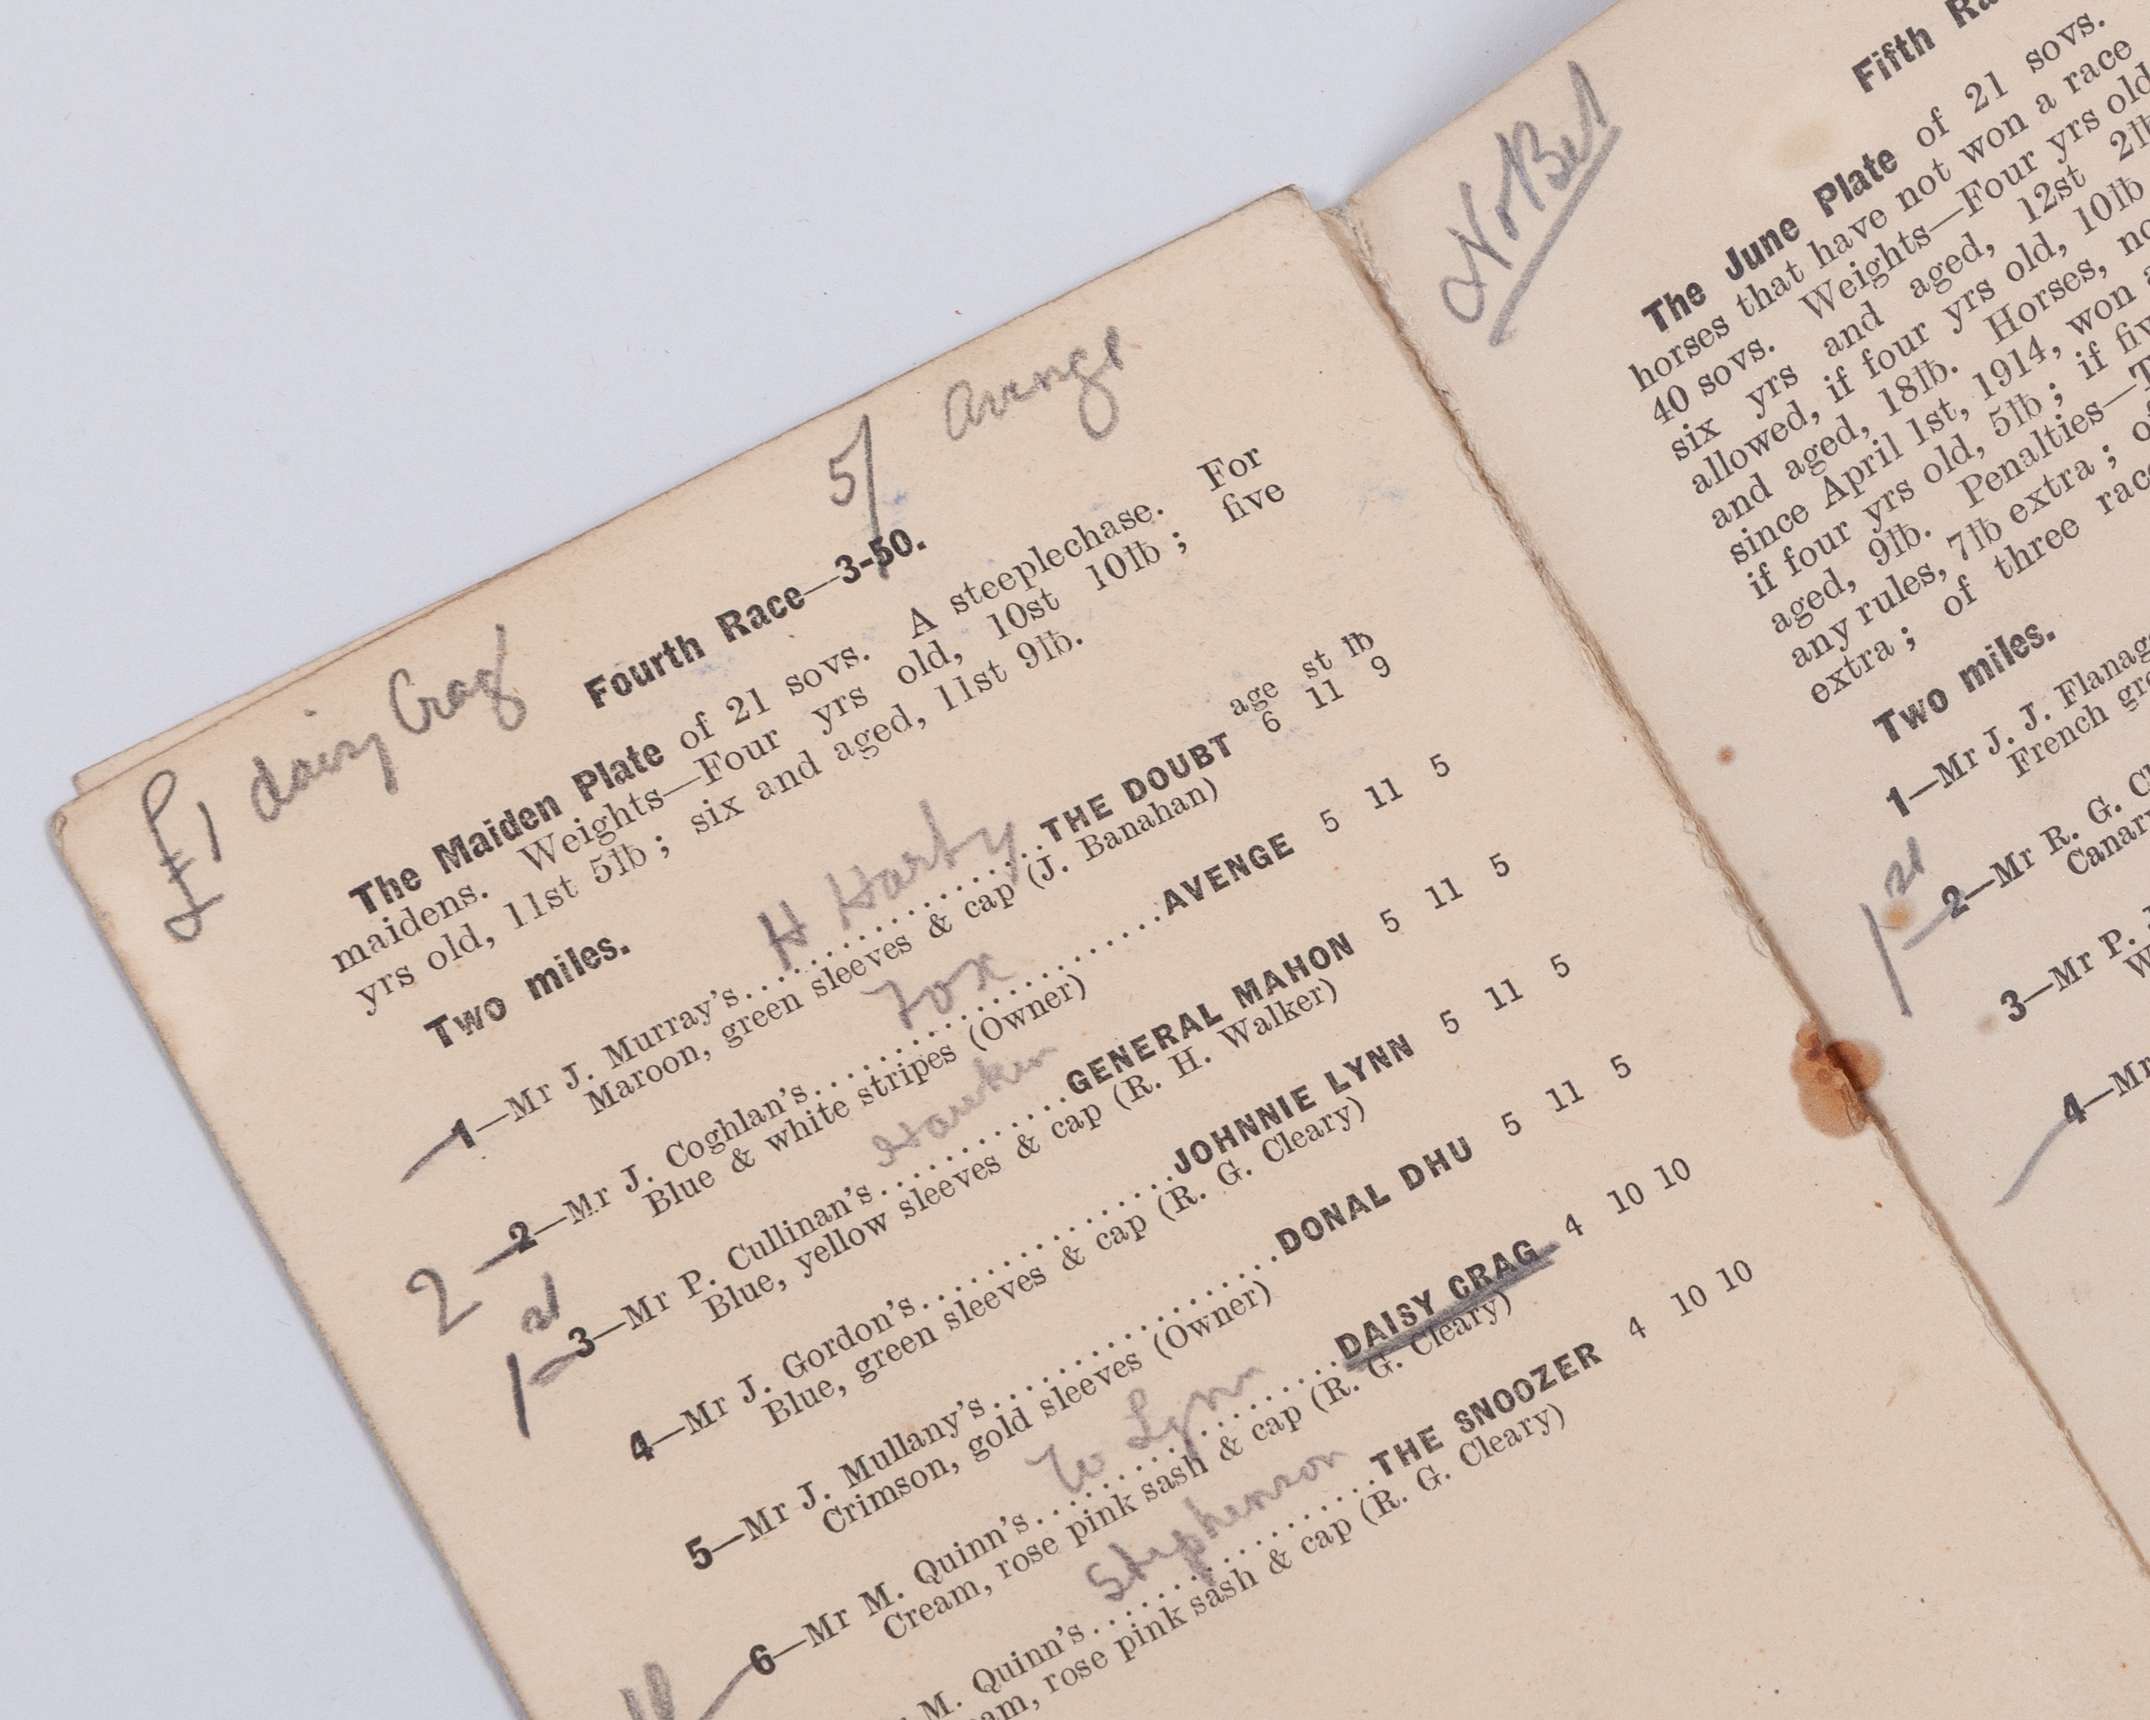 £1 daisy Crag
5/ Avenge
Fourth Race—3-50.
The Maiden Plate of 21 sovs. A steeplechase. For
maidens. Weights—Four yrs old, 10st 10lb; five
yrs old, 11st 5lb; six and aged, 11st 9lb.
Two miles.
age st lb
H Harty
1—Mr J. Murray's THE DOUBT 6 11 9
Maroon, green sleeves & cap (J. Banahan)
Fox
2—Mr J. Coghlan's AVENGE 5 11 5
Blue & white stripes (Owner)
2
Hawker
1st
3—Mr P. Cullinan's GENERAL MAHON 5 11 5
Blue, yellow sleeves & cap (R. H. Walker)
4—Mr J. Gordon's JOHNNIE LYNN 5 11 5
Blue, green sleeves & cap (R. G. Cleary)
5—Mr J. Mullany's DONAL DHU 5 11 5
Crimson, gold sleeves (Owner)
W Lynn
6—Mr M. Quinn's DAISY CRAG 4 10 10
Cream, rose pink sash & cap (R. G. Cleary)
Stephenson
M. Quinn's THE SNOOZER 4 10 10
rose pink sash & cap (R. G. Cleary)
No Bet
Fifth
The June Plate of 21 sovs.
horses that have not won a race
40 sovs. Weights—Four yrs old
six yrs and aged, 12st
allowed, if four yrs old, 10lb
and aged, 18lb. Horses,
since April 1st, 1914, won
if four yrs old, 5lb; if
aged, 9lb. Penalties—
any rules, 7lb extra;
extra; of three
Two miles.
1—Mr J. J.
French
1st
2—Mr R. G.
3—Mr P.
4—Mr